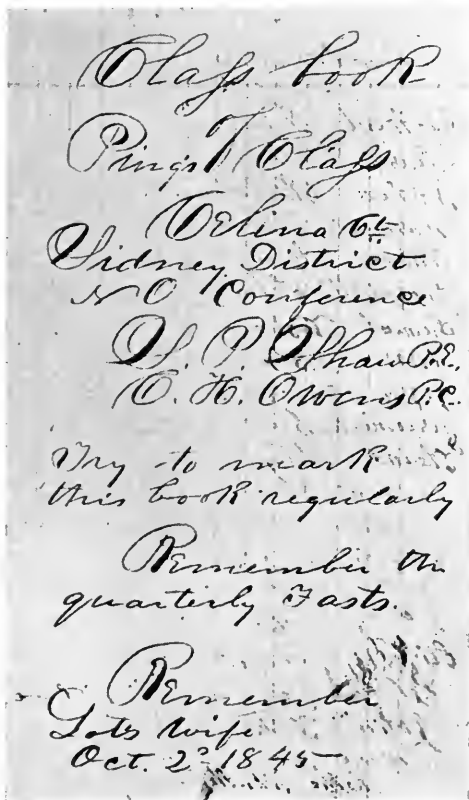 Class book
of
Pings Class
Celina Ct
Sidney District
N O Conference
S. P. Shaw P.E.
C. H. Owens P.C.
Try to mark
this book regularly
Remember the
quarterly Fasts.
Remember
Lots wife
Oct. 2d 1845